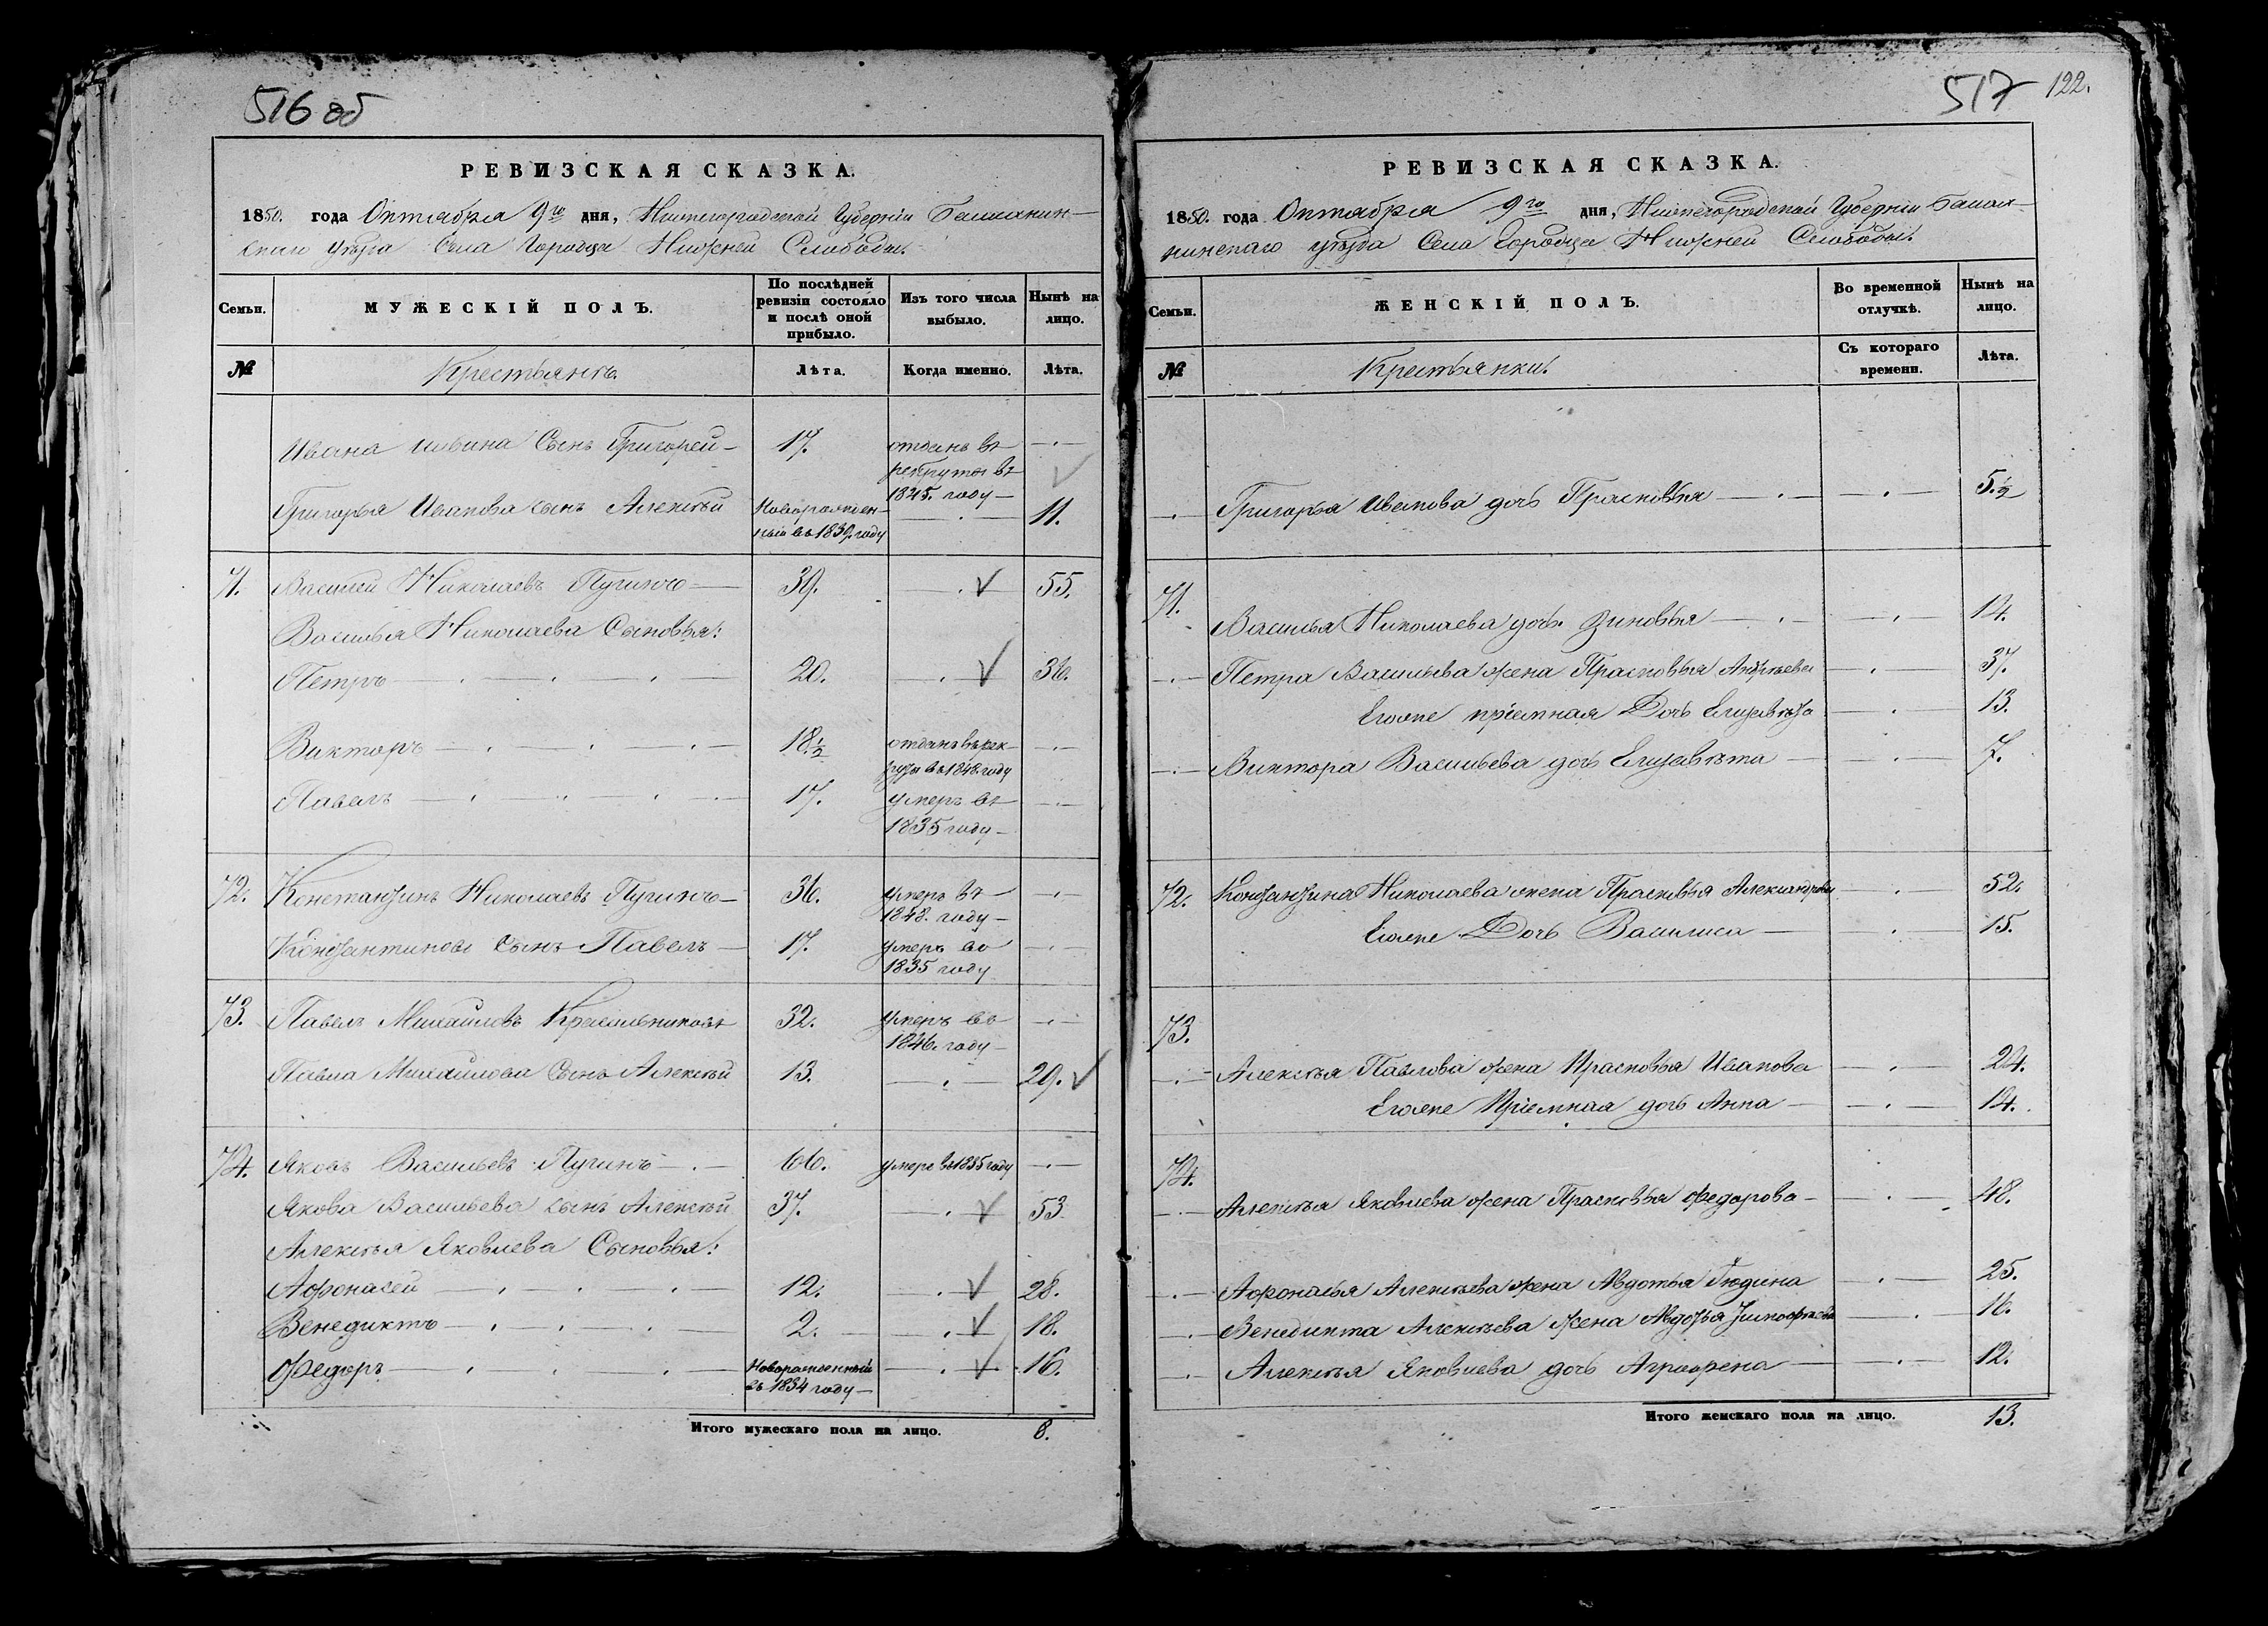 516 об
РЕВИЗСКАЯ СКАЗКА.
1850. года Октября 9го дня, Нижегородской Губерніи Балахнин-
скаго уѣзда Села Городца Нижней Слободы.
Семьи.
МУЖЕСКІЙ ПОЛЪ.
По послѣдней ревизіи состояло и послѣ оной прибыло.
Изъ того числа выбыло.
Нынѣ на лицо.
№
Крестьянъ.
Лѣта.
Когда именно.
Лѣта.
Ивана сынъ Григорей 17. отданъ въ рекруты въ 1845. году
Григорья Иванова сынъ Алексѣй Новорожденный въ 1839. году 11.
71. Василей Николаевъ Пугинъ 39. 55.
Василья Николаева Сыновья:
Петръ 20. 36.
Викторъ 18½ отданъ въ рекруты въ 1848. году
Павелъ 17. умеръ въ 1835 году
72. Константинъ Николаевъ Пугинъ 36. умеръ въ 1848. году
Константинова Сынъ Павелъ 17. умеръ въ 1835 году
73. Павелъ Михайловъ Красильниковъ 32. умеръ въ 1846. году
Павла Михайлова Сынъ Алексѣй 13. 29.
74. Яковъ Васильевъ Пугинъ 66. умеръ въ 1835 году
Якова Васильева сынъ Алексѣй 37. 53
Алексѣя Яковлева Сыновья:
Афонасей 12. 28.
Венедиктъ 2. 18.
Федоръ Новорожденный въ 1834 году 16.
Итого мужескаго пола на лицо. 8.
517 122.
РЕВИЗСКАЯ СКАЗКА.
1850. года Октября 9го дня, Нижегородской Губерніи Балах-
нинскаго уѣзда Села Городца Нижней Слободы.
Семьи.
ЖЕНСКІЙ ПОЛЪ.
Во временной отлучкѣ.
Нынѣ на лицо.
№
Крестьянки.
Съ котораго времени.
Лѣта.
Григорья Иванова дочь Прасковья 5.½
71. Василья Николаева дочь Зиновья 14.
Петра Васильева жена Прасковья Андреева 37.
Ево же пріемная Дочь Елизавета 13.
Виктора Васильева дочь Елизавета 7.
72. Константина Николаева жена Прасковья Александрова 52.
Ево же Дочь Василиса 15.
73.
Алексѣя Павлова жена Прасковья Иванова 24.
Ево же Пріемная дочь Анна 14.
74.
Алексѣя Яковлева жена Прасковья Федорова 48.
Афонасья Алексѣева жена Авдотья 25.
Венедикта Алексѣева жена Авдотья Тимофеева 16.
Алексѣя Яковлева дочь Аграфена 12.
Итого женскаго пола на лицо. 13.